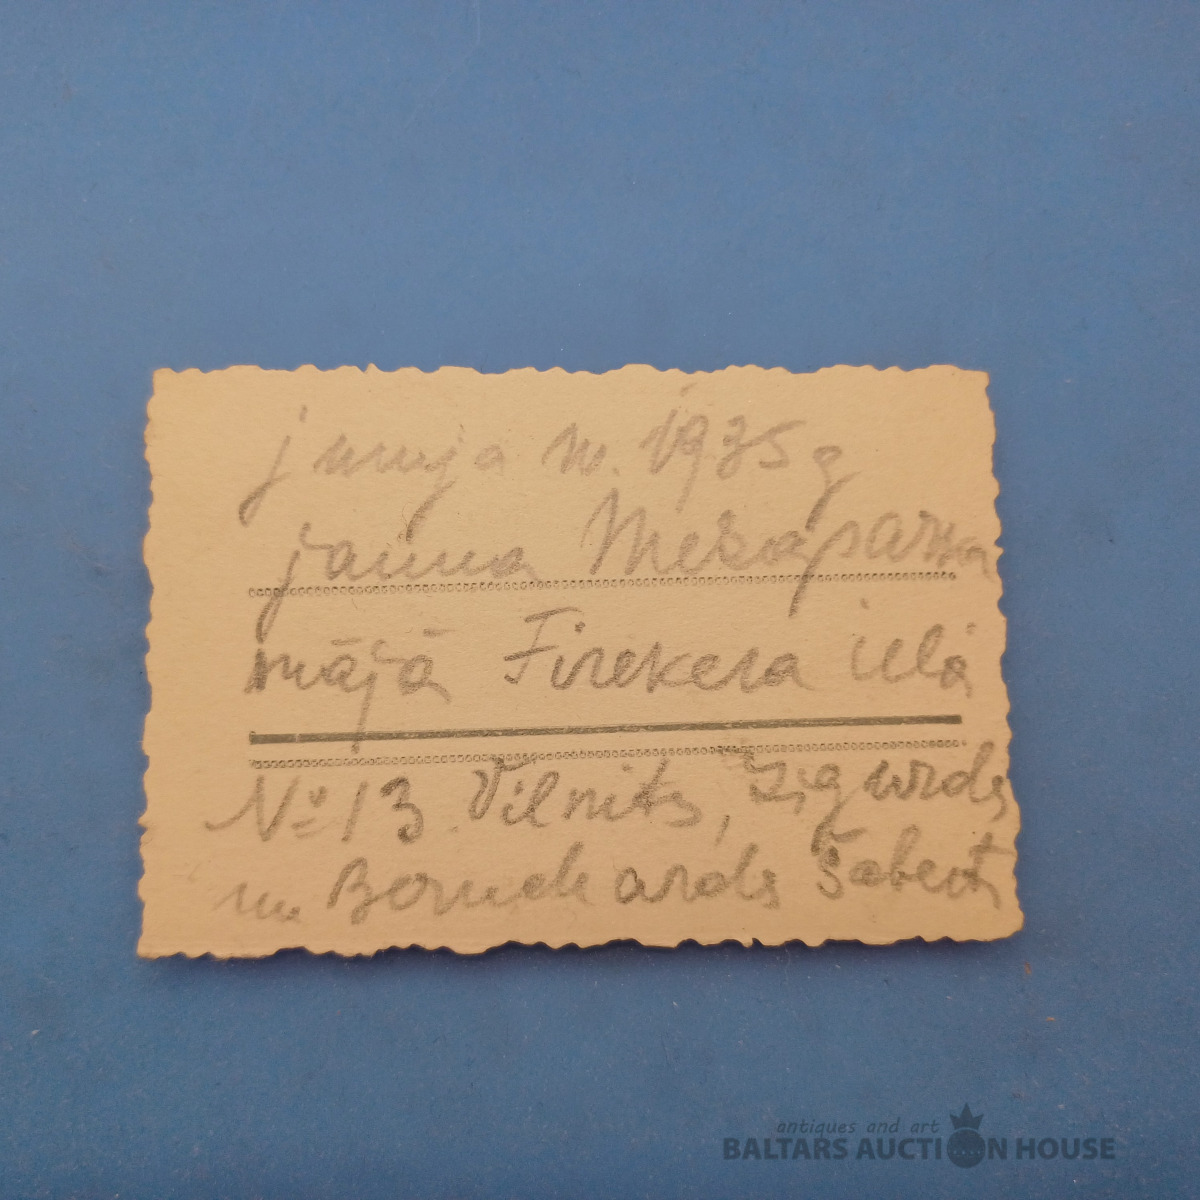 junija m. 1935 g
jauna Mežaparka
mājā Finekera ielā
No 13. Vilnits, Zigurds
un Boruchards Šabert
antiques and art
BALTARS AUCTION HOUSE